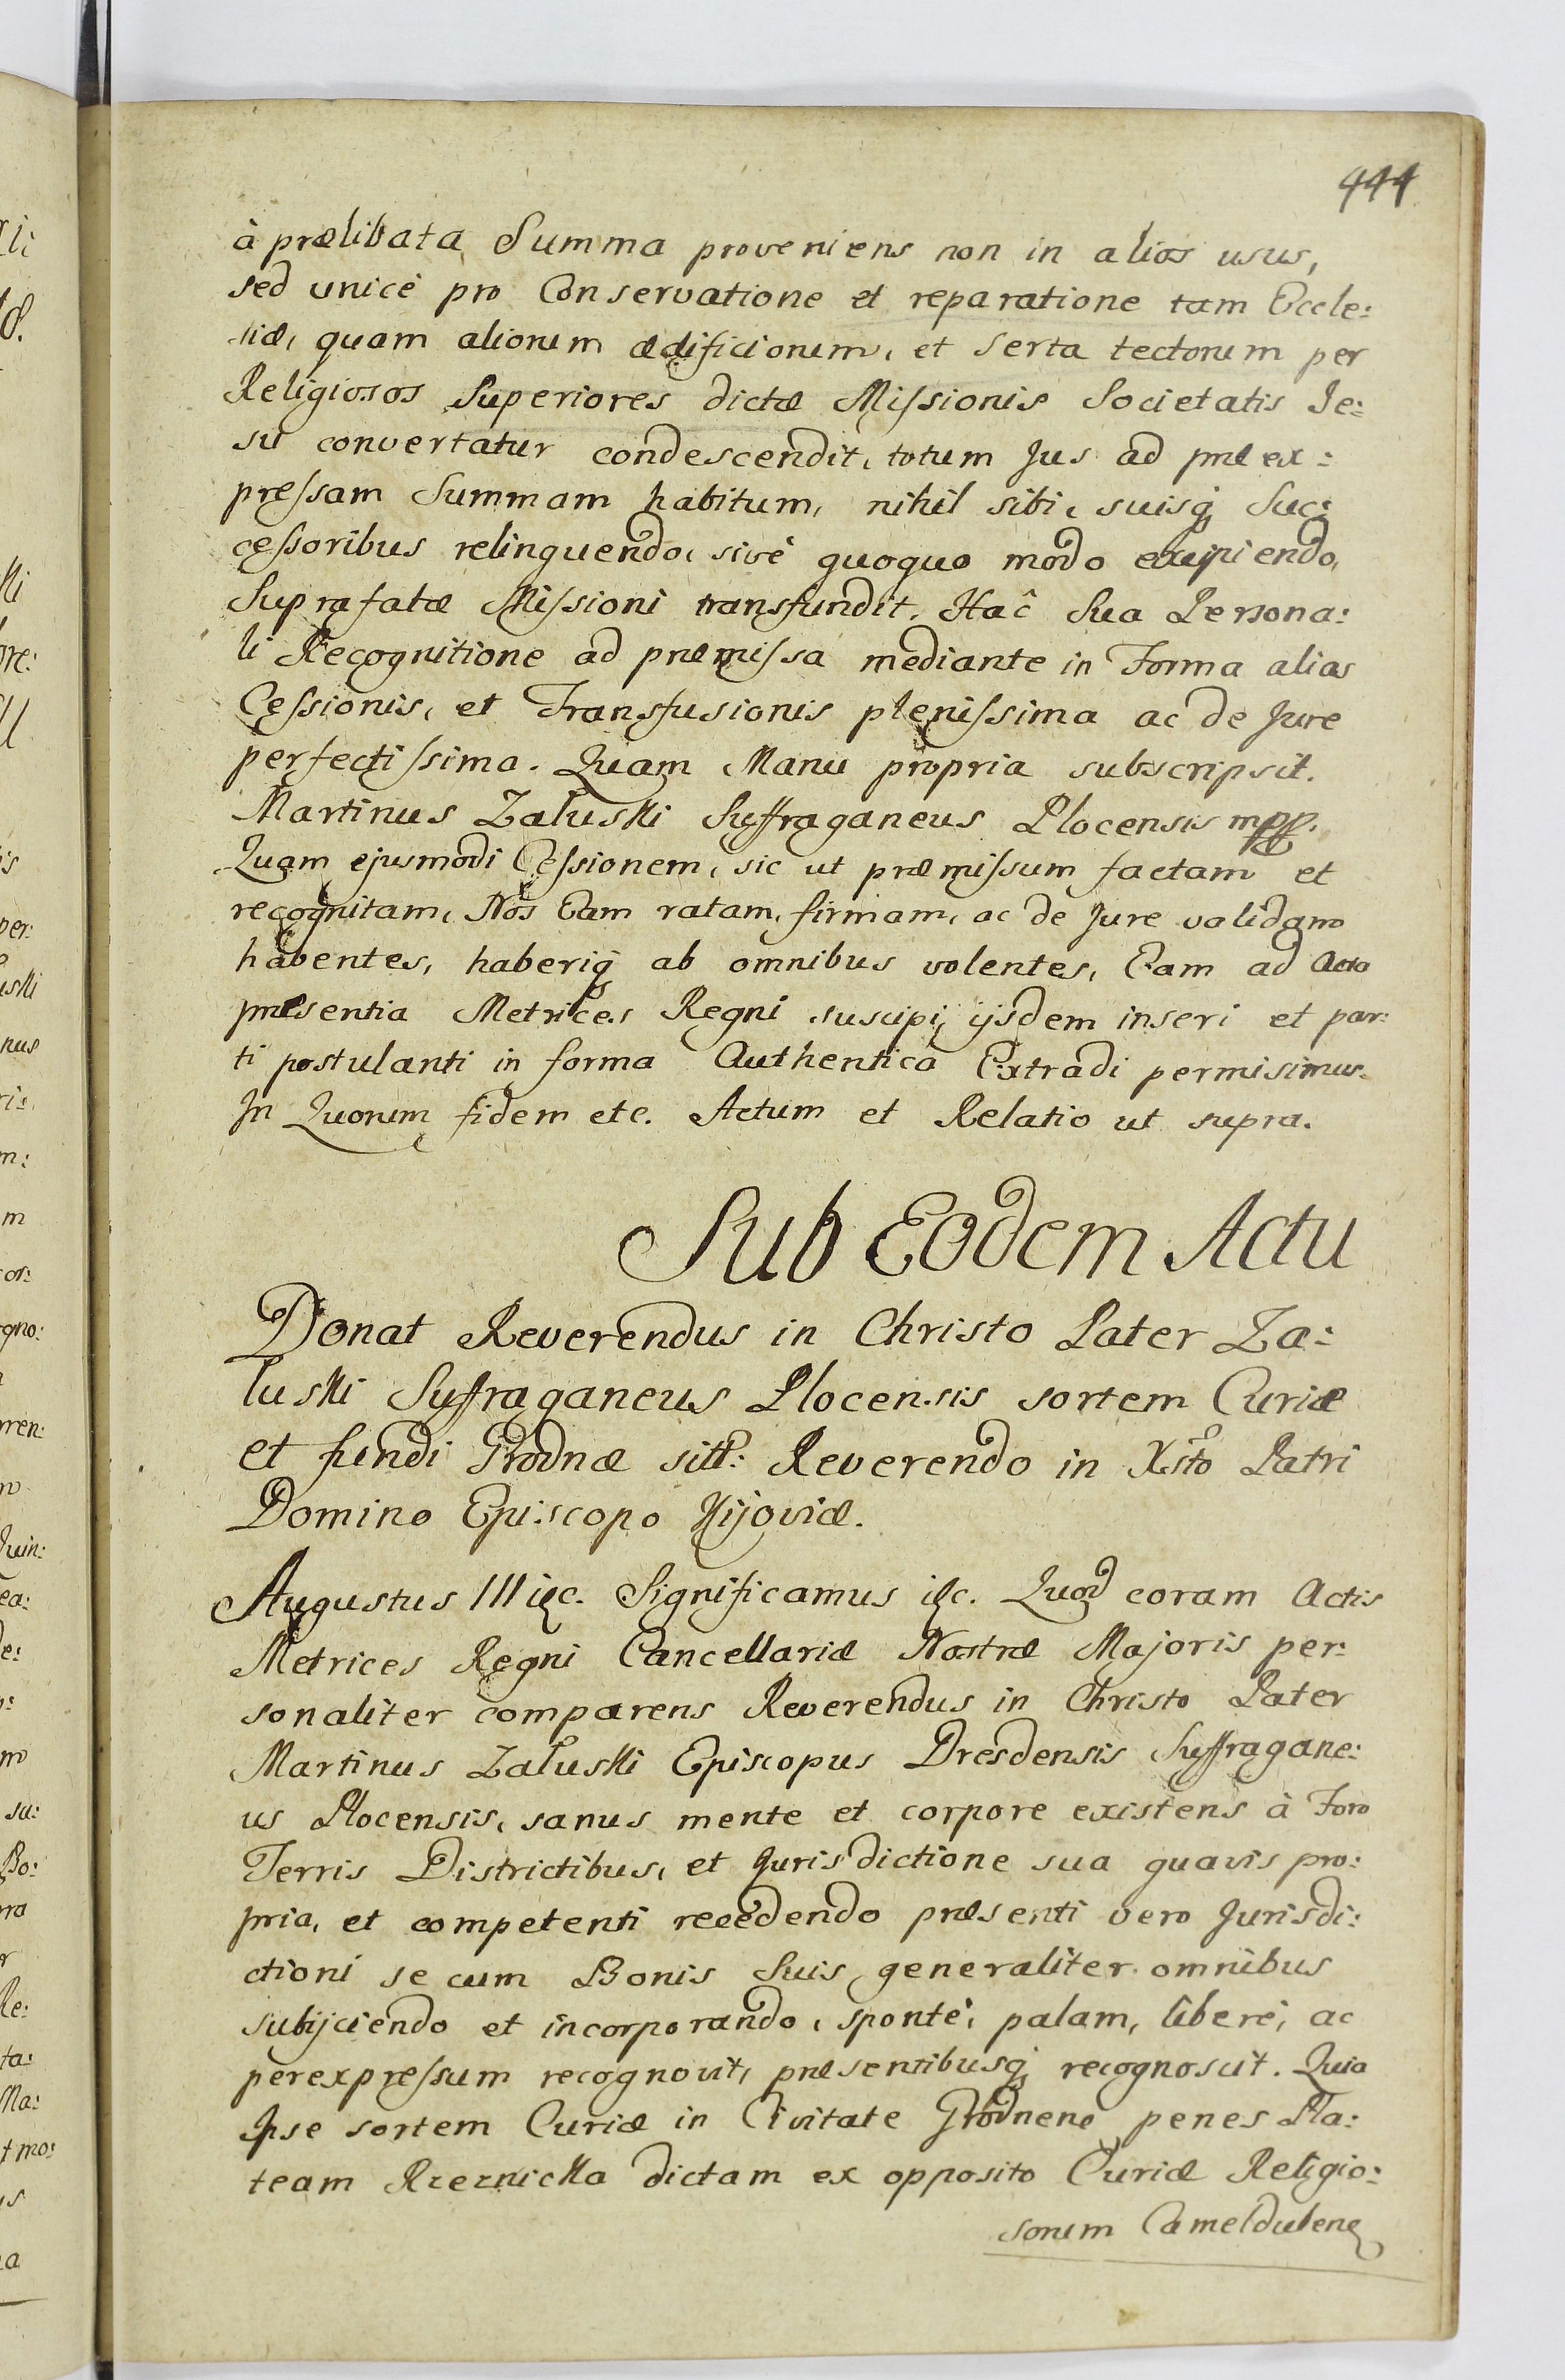 444
à prælibata Summa proveniens non in alios usus,
sed unicè pro Conservatione et reparatione tam Eccle:
siæ, quam aliorum ædificiorum, et serta tectorum per
Religiosos Superiores dictæ Missionis Societatis Je:
su convertatur condescendit, totum Jus ad præex:
pressam Summam habitum, nihil sibi, suisq; Suc:
cessoribus relinquendo, sivè quoquo modo excipiendo,
Suprafatæ Missioni transfundit. Hac̃ Sua Persona:
li Recognitione ad præmissa mediante in Forma alias
Cessionis, et Transfusionis plenissima ac de Jure
perfectissima. Quam Manu propria subscripsit.
Martinus Załuski Suffraganeus Plocensis mpp.
Quam ejusmodi Cessionem, sic ut præmissum factam et
recognitam, Nos Eam ratam, firmam, ac de Jure validam
habentes, haberiq; ab omnibus volentes, Eam ad Acta
præsentia Metrices Regni suscipi, ijsdem inseri et par:
ti postulanti in forma Authentica Extradi permisimus.
In Quorum fidem etc. Actum et Relatio ut supra.
Sub Eodem Actu
Donat Reverendus in Christo Pater Za:
luski Suffraganeus Plocensis sortem Curiæ
et fundi Grodnæ sitt: Reverendo in Xsto Patri
Domino Episcopo Kijoviæ.
Augustus III etc. Significamus etc. Quod coram Actis
Metrices Regni Cancellariæ Nostræ Majoris per:
sonaliter comparens Reverendus in Christo Pater
Martinus Załuski Episcopus Dresdensis Suffragane:
us Plocensis, sanus mente et corpore existens à Foro
Terris Districtibus, et Jurisdictione sua quavis pro:
pria, et competenti recedendo præsenti vero Jurisdi:
ctioni se cum Bonis Suis generaliter omnibus
subijciendo et incorporando, spontè, palam, liberè, ac
perexpressum recognovit, præsentibusq; recognoscit. Quia
Ipse sortem Curiæ in Civitate Grodnene penes Pla:
team Rzeznicka dictam ex opposito Curiæ Religio:
sorum Cameldulen